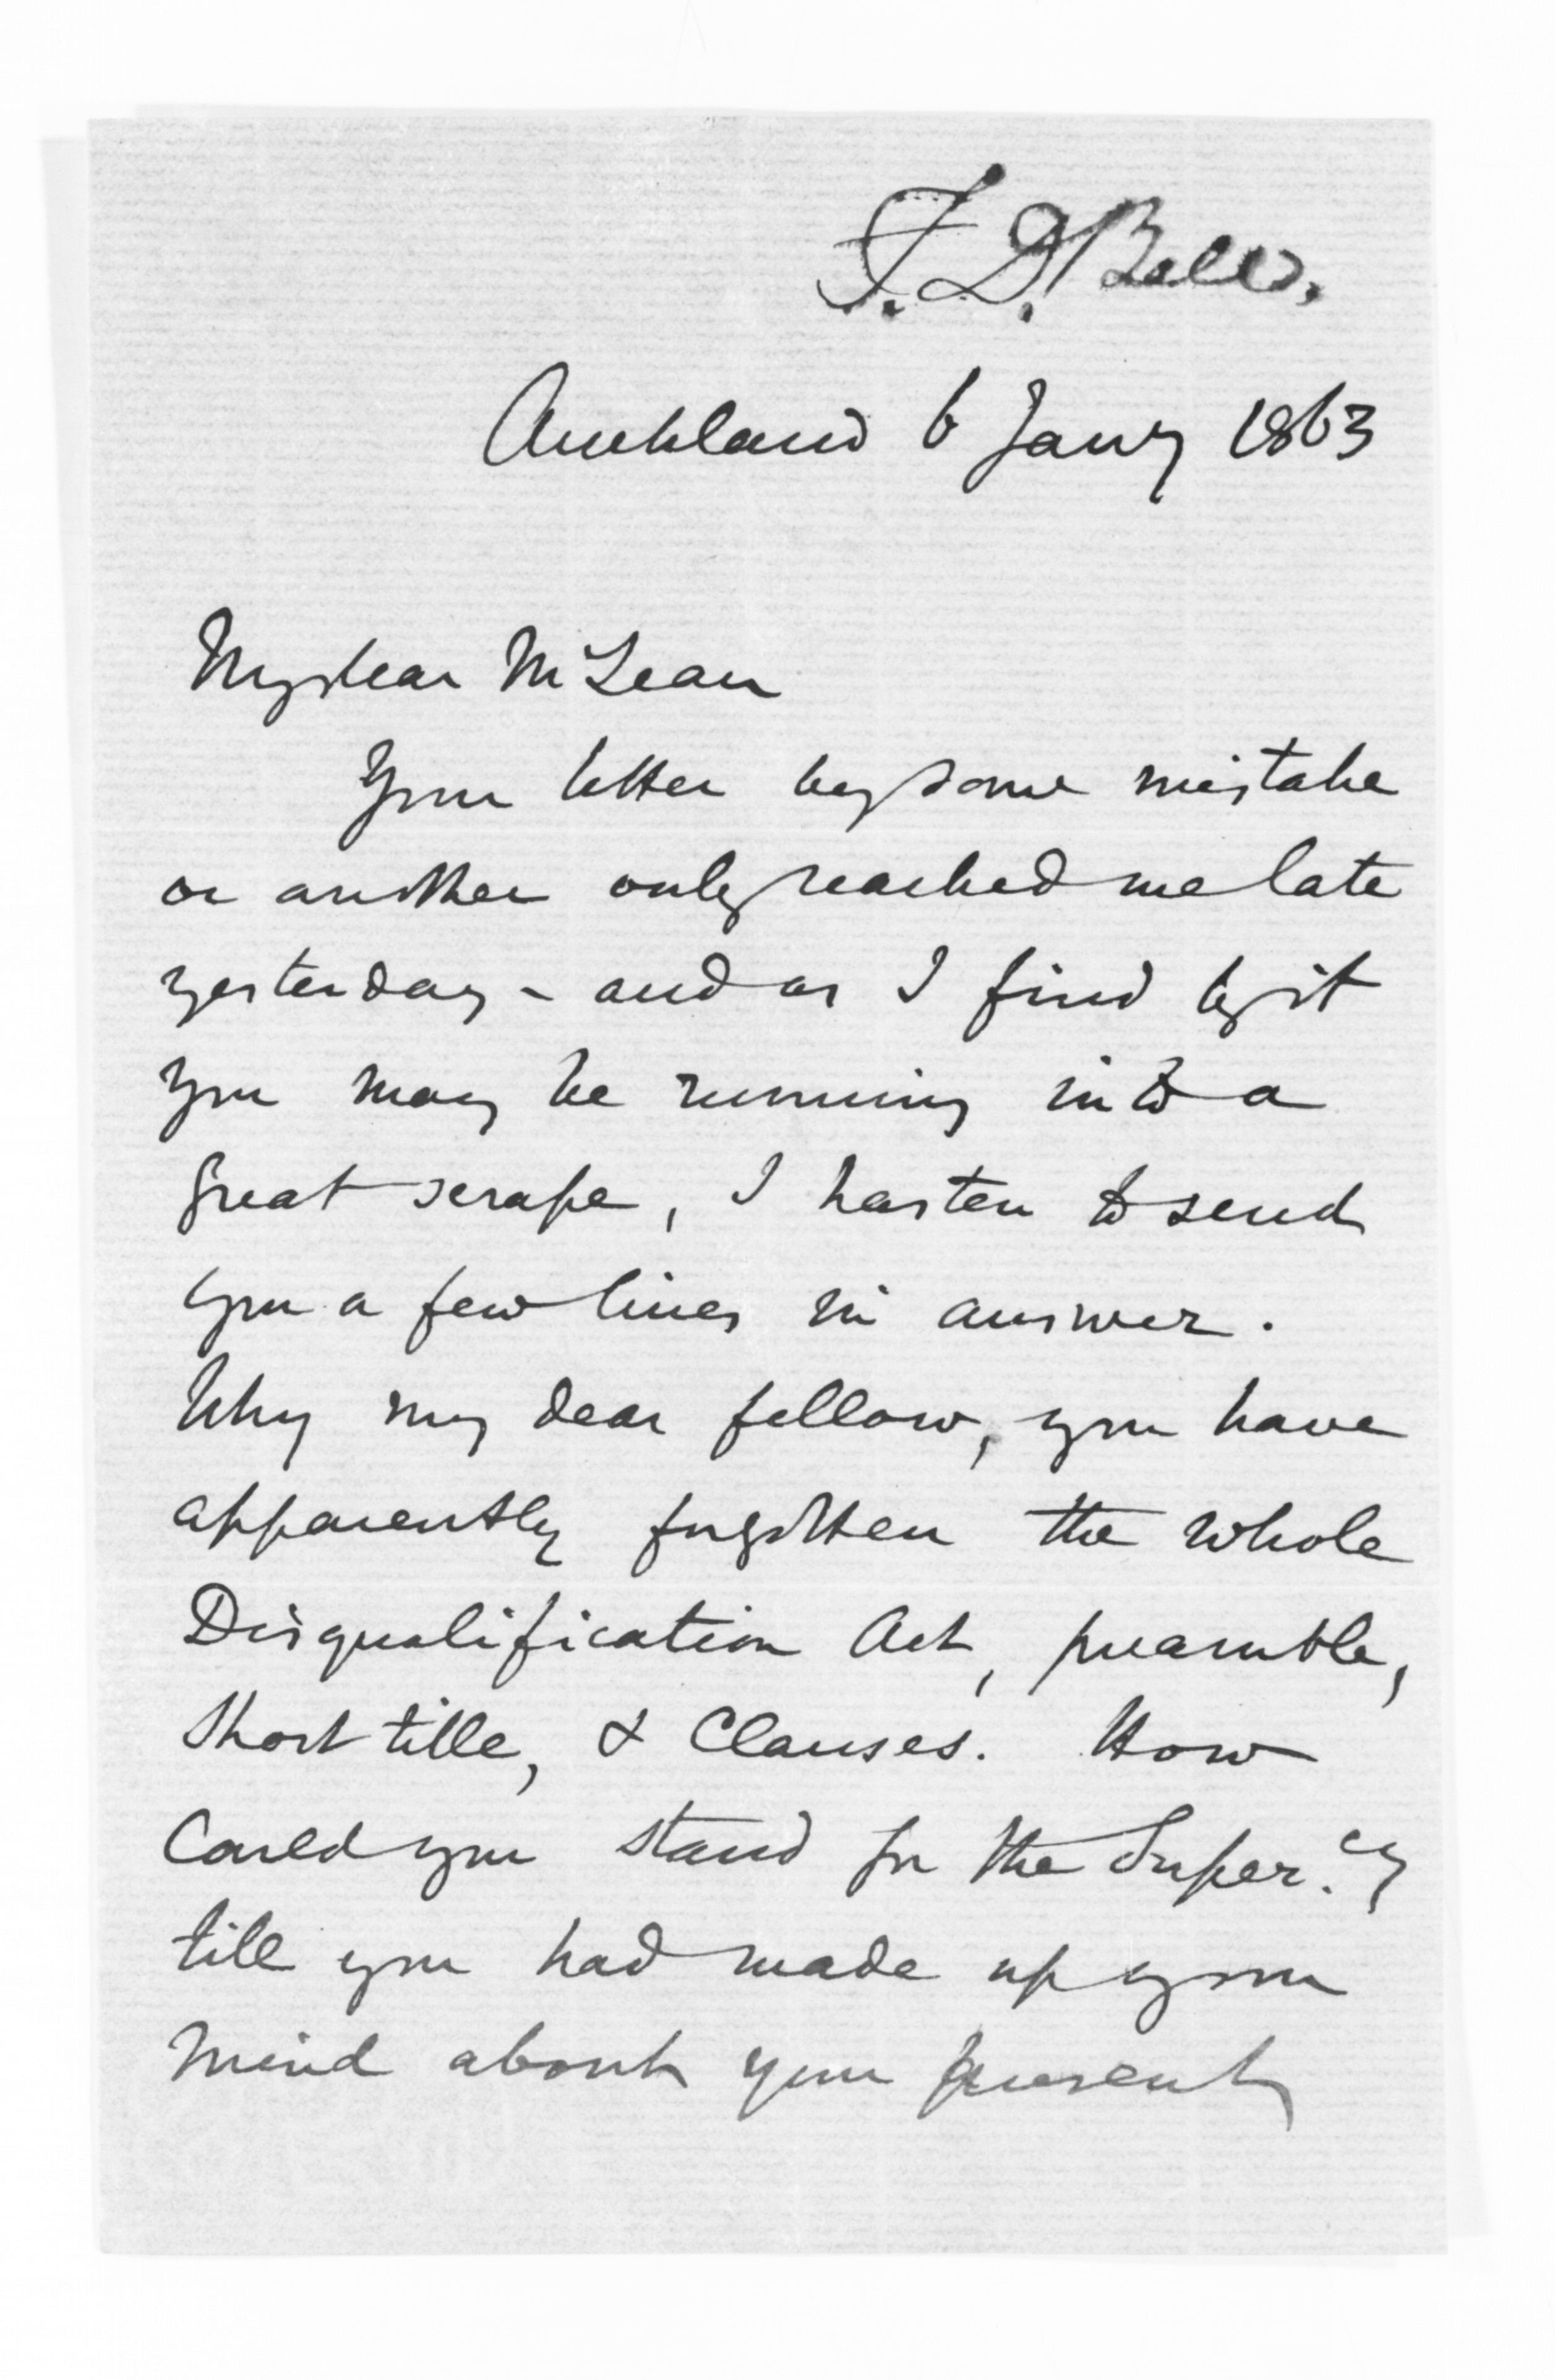 F. D. Bell.
Auckland 6 Jany 1863
My dear McLean
Your letter by some mistake
or another only reached me late
yesterday - and as I find by it
you may be running into a
great scrape, I hasten to send
you a few lines in answer.
Why my dear fellow, you have
apparently forgotten the whole
Disqualification Act, preamble,
short title, & Clauses. How
could you stand for the Super.cy
till you had made up your
mind about your present